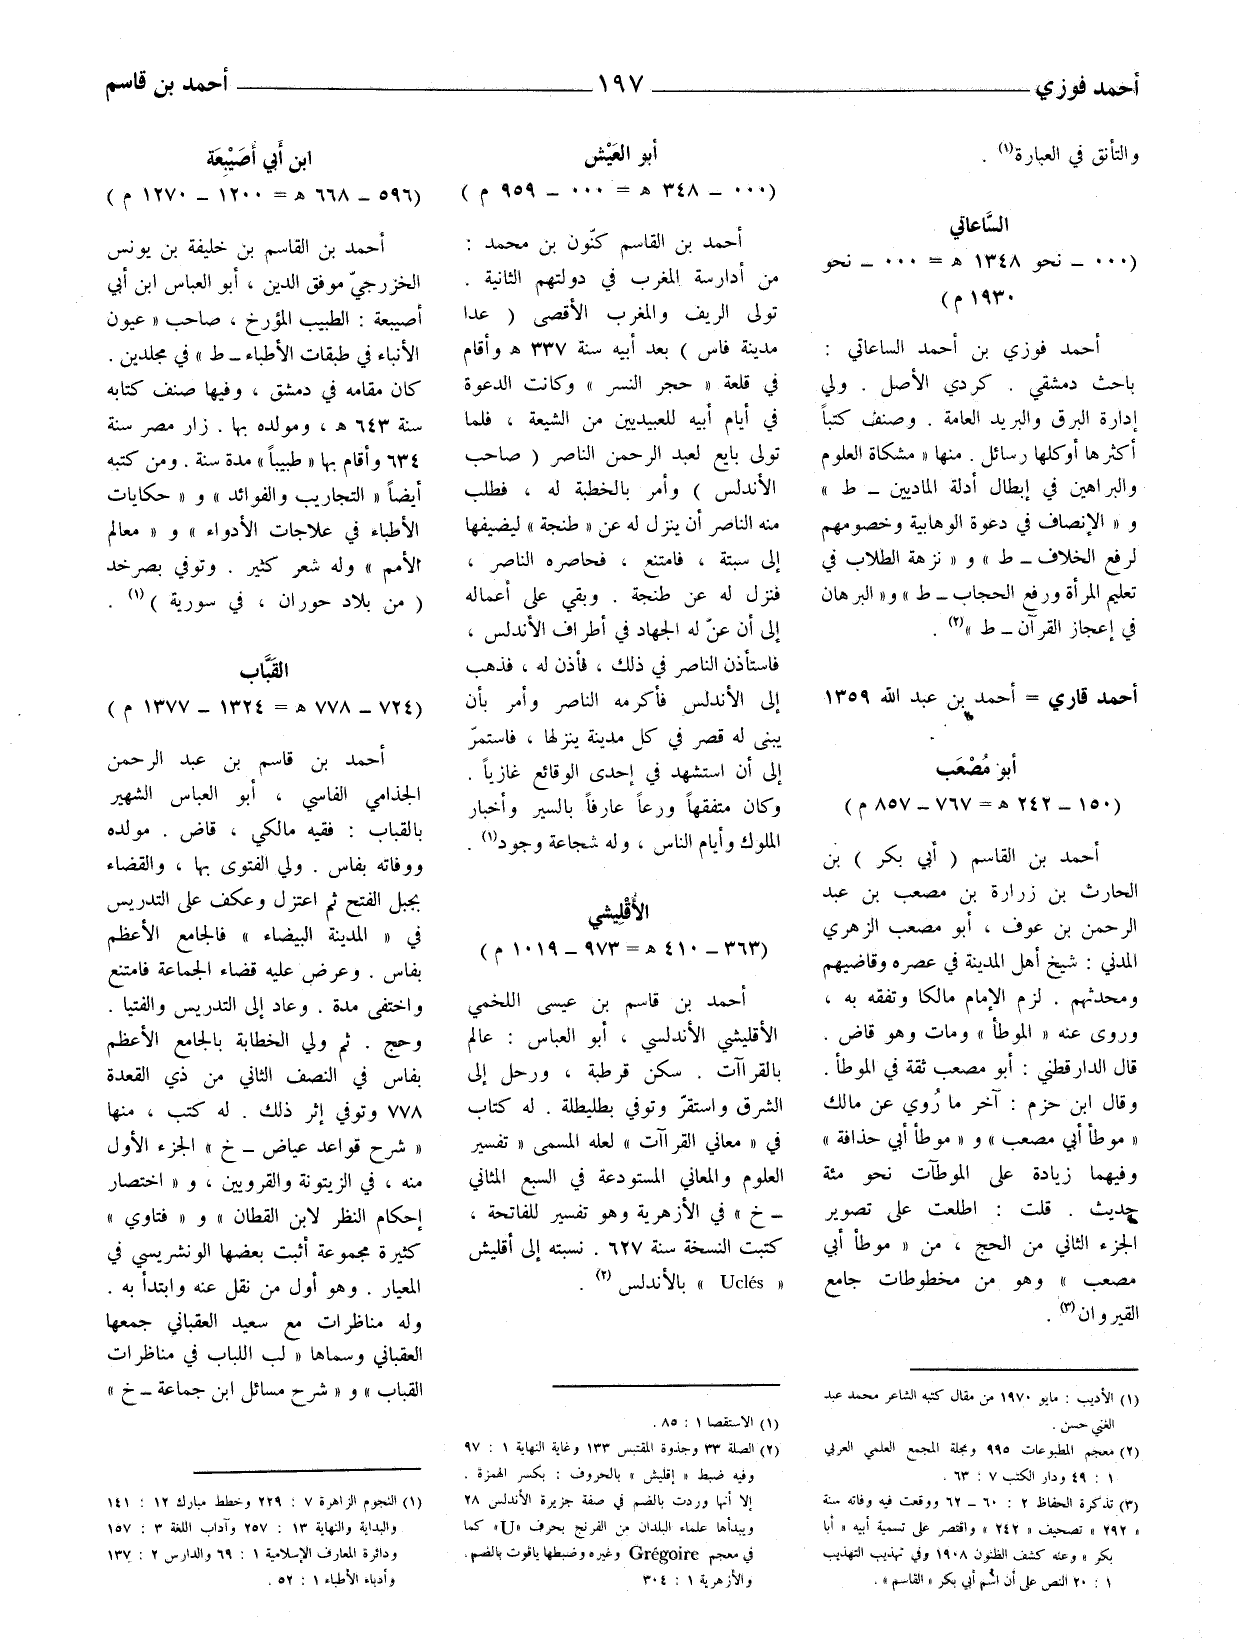 أحمد فوزي ١٩٧ أحمد بن قاسم
والتأنق في العبارة(١) .
السَّاعاتي
(٠٠٠ – نحو ١٣٤٨ ه = ٠٠٠ – نحو
١٩٣٠ م)
أحمد فوزي بن أحمد الساعاتي :
باحث دمشقي . كردي الأصل . ولي
إدارة البرق والبريد العامة . وصنف كتباً
أكثرها أوكلها رسائل . منها « مشكاة العلوم
والبراهين في إبطال أدلة الماديين – ط »
و « الإنصاف في دعوة الوهابية وخصومهم
لرفع الخلاف – ط » و « نزهة الطلاب في
تعليم المرأة ورفع الحجاب – ط » و« البرهان
في إعجاز القرآن – ط »(٢) .
أحمد قاري = أحمد بن عبد الله ١٣٥٩
أبو مُصْعَب
(١٥٠ – ٢٤٢ ه = ٧٦٧ – ٨٥٧ م )
أحمد بن القاسم ( أبي بكر ) بن
الحارث بن زرارة بن مصعب بن عبد
الرحمن بن عوف ، أبو مصعب الزهري
المدني : شيخ أهل المدينة في عصره وقاضيهم
ومحدثهم . لزم الإمام مالكا وتفقه به ،
وروى عنه « الموطأ » ومات وهو قاض .
قال الدارقطني : أبو مصعب ثقة في الموطأ .
وقال ابن حزم : آخر ما رُوي عن مالك
« موطأ أبي مصعب » و « موطأ أبي حذافة »
وفيهما زيادة على الموطآت نحو مئة
حديث . قلت : اطلعت على تصوير
الجزء الثاني من الحج ، من « موطأ أبي
مصعب » وهو من مخطوطات جامع
القيروان(٣) .
(١) الأديب : مايو ١٩٧٠ من مقال كتبه الشاعر محمد عبد
الغني حسن .
(٢) معجم المطبوعات ٩٩٥ ومجلة المجمع العلمي العربي
١ : ٤٩ ودار الكتب ٧ : ٦٣ .
(٣) تذكرة الحفاظ ٢ : ٦٠ – ٦٢ ووقعت فيه وفاته سنة
« ٢٩٢ » تصحيف « ٢٤٢ » واقتصر على تسمية أبيه « أبا
بكر » وعنه كشف الظنون ١٩٠٨ وفي تهذيب التهذيب
١ : ٢٠ النص على أن اسم أبي بكر « القاسم » .
أبو العَيْش
(٠٠٠ – ٣٤٨ ه = ٠٠٠ – ٩٥٩ م )
أحمد بن القاسم كنّون بن محمد :
من أدارسة المغرب في دولتهم الثانية .
تولى الريف والمغرب الأقصى ( عدا
مدينة فاس ) بعد أبيه سنة ٣٣٧ ه وأقام
في قلعة « حجر النسر » وكانت الدعوة
في أيام أبيه للعبيديين من الشيعة ، فلما
تولى بايع لعبد الرحمن الناصر ( صاحب
الأندلس ) وأمر بالخطبة له ، فطلب
منه الناصر أن ينزل له عن « طنجة » ليضيفها
إلى سبتة ، فامتنع ، فحاصره الناصر ،
فنزل له عن طنجة . وبقي على أعماله
إلى أن عنّ له الجهاد في أطراف الأندلس ،
فاستأذن الناصر في ذلك ، فأذن له ، فذهب
إلى الأندلس فأكرمه الناصر وأمر بأن
يبنى له قصر في كل مدينة ينزلها ، فاستمرّ
إلى أن استشهد في إحدى الوقائع غازياً .
وكان متفقهاً ورعاً عارفاً بالسير وأخبار
الملوك وأيام الناس ، وله شجاعة وجود(١) .
الأُقْلِيشي
(٣٦٣ – ٤١٠ ه = ٩٧٣ – ١٠١٩ م )
أحمد بن قاسم بن عيسى اللخمي
الأقليشي الأندلسي ، أبو العباس : عالم
بالقراآت . سكن قرطبة ، ورحل إلى
الشرق واستقرّ وتوفي بطليطلة . له كتاب
في « معاني القراآت » لعله المسمى « تفسير
العلوم والمعاني المستودعة في السبع المثاني
– خ » في الأزهرية وهو تفسير للفاتحة ،
كتبت النسخة سنة ٦٢٧ . نسبته إلى أقليش
« Uclés » بالأندلس (٢) .
(١) الاستقصا ١ : ٨٥ .
(٢) الصلة ٣٣ وجذوة المقتبس ١٣٣ وغاية النهاية ١ : ٩٧
وفيه ضبط « إقليش » بالحروف : بكسر الهمزة .
إلا أنها وردت بالضم في صفة جزيرة الأندلس ٢٨
ويبدأها علماء البلدان من الفرنج بحرف «U» كما
في معجم Grégoire وغيره وضبطها ياقوت بالضم.
والأزهرية ١ : ٣٠٤
ابن أَبي أُصَيْبِعَة
(٥٩٦ – ٦٦٨ ه = ١٢٠٠ – ١٢٧٠ م )
أحمد بن القاسم بن خليفة بن يونس
الخزرجيّ موفق الدين ، أبو العباس ابن أبي
أصيبعة : الطبيب المؤرخ ، صاحب « عيون
الأنباء في طبقات الأطباء – ط » في مجلدين .
كان مقامه في دمشق ، وفيها صنف كتابه
سنة ٦٤٣ ه ، ومولده بها . زار مصر سنة
٦٣٤ وأقام بها « طبيباً » مدة سنة . ومن كتبه
أيضاً « التجاريب والفوائد » و « حكايات
الأطباء في علاجات الأدواء » و « معالم
الأمم » وله شعر كثير . وتوفي بصرخد
( من بلاد حوران ، في سورية )(١) .
القَبَّاب
(٧٢٤ – ٧٧٨ ه = ١٣٢٤ – ١٣٧٧ م )
أحمد بن قاسم بن عبد الرحمن
الجذامي الفاسي ، أبو العباس الشهير
بالقباب : فقيه مالكي ، قاض . مولده
ووفاته بفاس . ولي الفتوى بها ، والقضاء
بجبل الفتح ثم اعتزل وعكف على التدريس
في « المدينة البيضاء » فالجامع الأعظم
بفاس . وعرض عليه قضاء الجماعة فامتنع
واختفى مدة . وعاد إلى التدريس والفتيا .
وحج . ثم ولي الخطابة بالجامع الأعظم
بفاس في النصف الثاني من ذي القعدة
٧٧٨ وتوفي إثر ذلك . له كتب ، منها
« شرح قواعد عياض – خ » الجزء الأول
منه ، في الزيتونة والقرويين ، و « اختصار
إحكام النظر لابن القطان » و « فتاوي »
كثيرة مجموعة أثبت بعضها الونشريسي في
المعيار . وهو أول من نقل عنه وابتدأ به .
وله مناظرات مع سعيد العقباني جمعها
العقباني وسماها « لب اللباب في مناظرات
القباب » و « شرح مسائل ابن جماعة – خ »
(١) النجوم الزاهرة ٧ : ٢٢٩ وخطط مبارك ١٢ : ١٤١
والبداية والنهاية ١٣ : ٢٥٧ وآداب اللغة ٣ : ١٥٧
ودائرة المعارف الإسلامية ١ : ٦٩ والدارس ٢ : ١٣٧
وأدباء الأطباء ١ : ٥٢ .